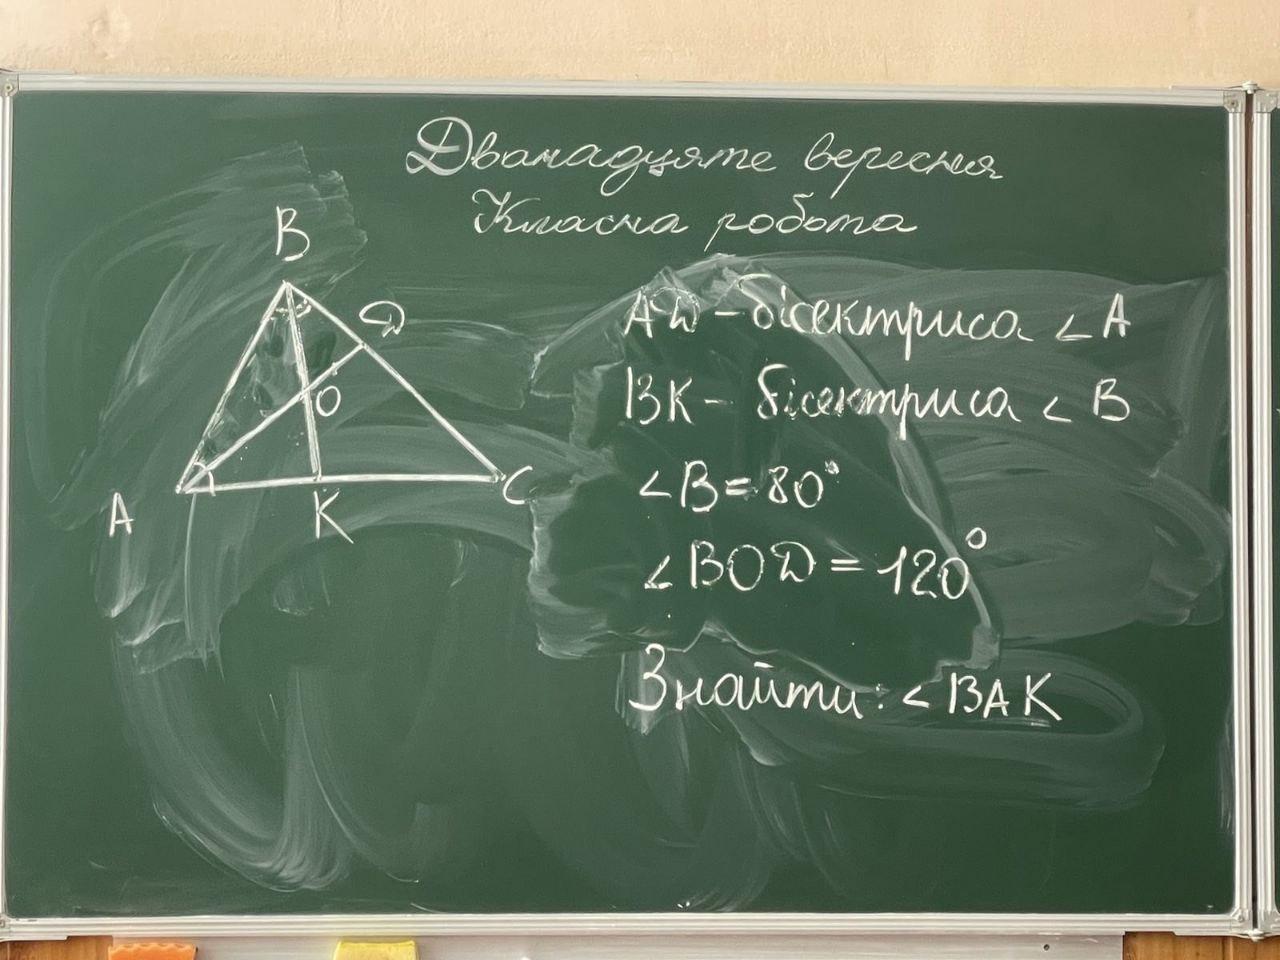 Дванадцяте вересня
Класна робота
B
D
O
A
K
C
AD - бісектриса ∠A
BK - бісектриса ∠B
∠B = 80°
∠BOD = 120°
Знайти: ∠BAK